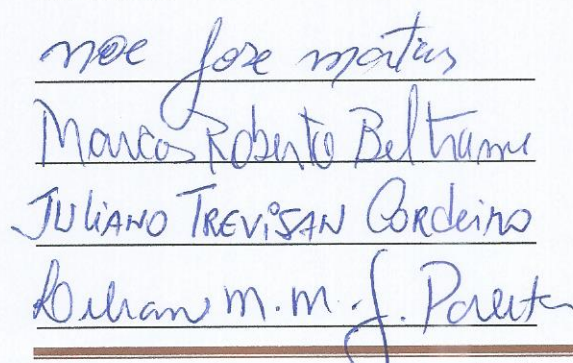 noe jose martins
Marcos Roberto Beltrame
JULIANO TREVISAN CORDEIRO
M. M. J.